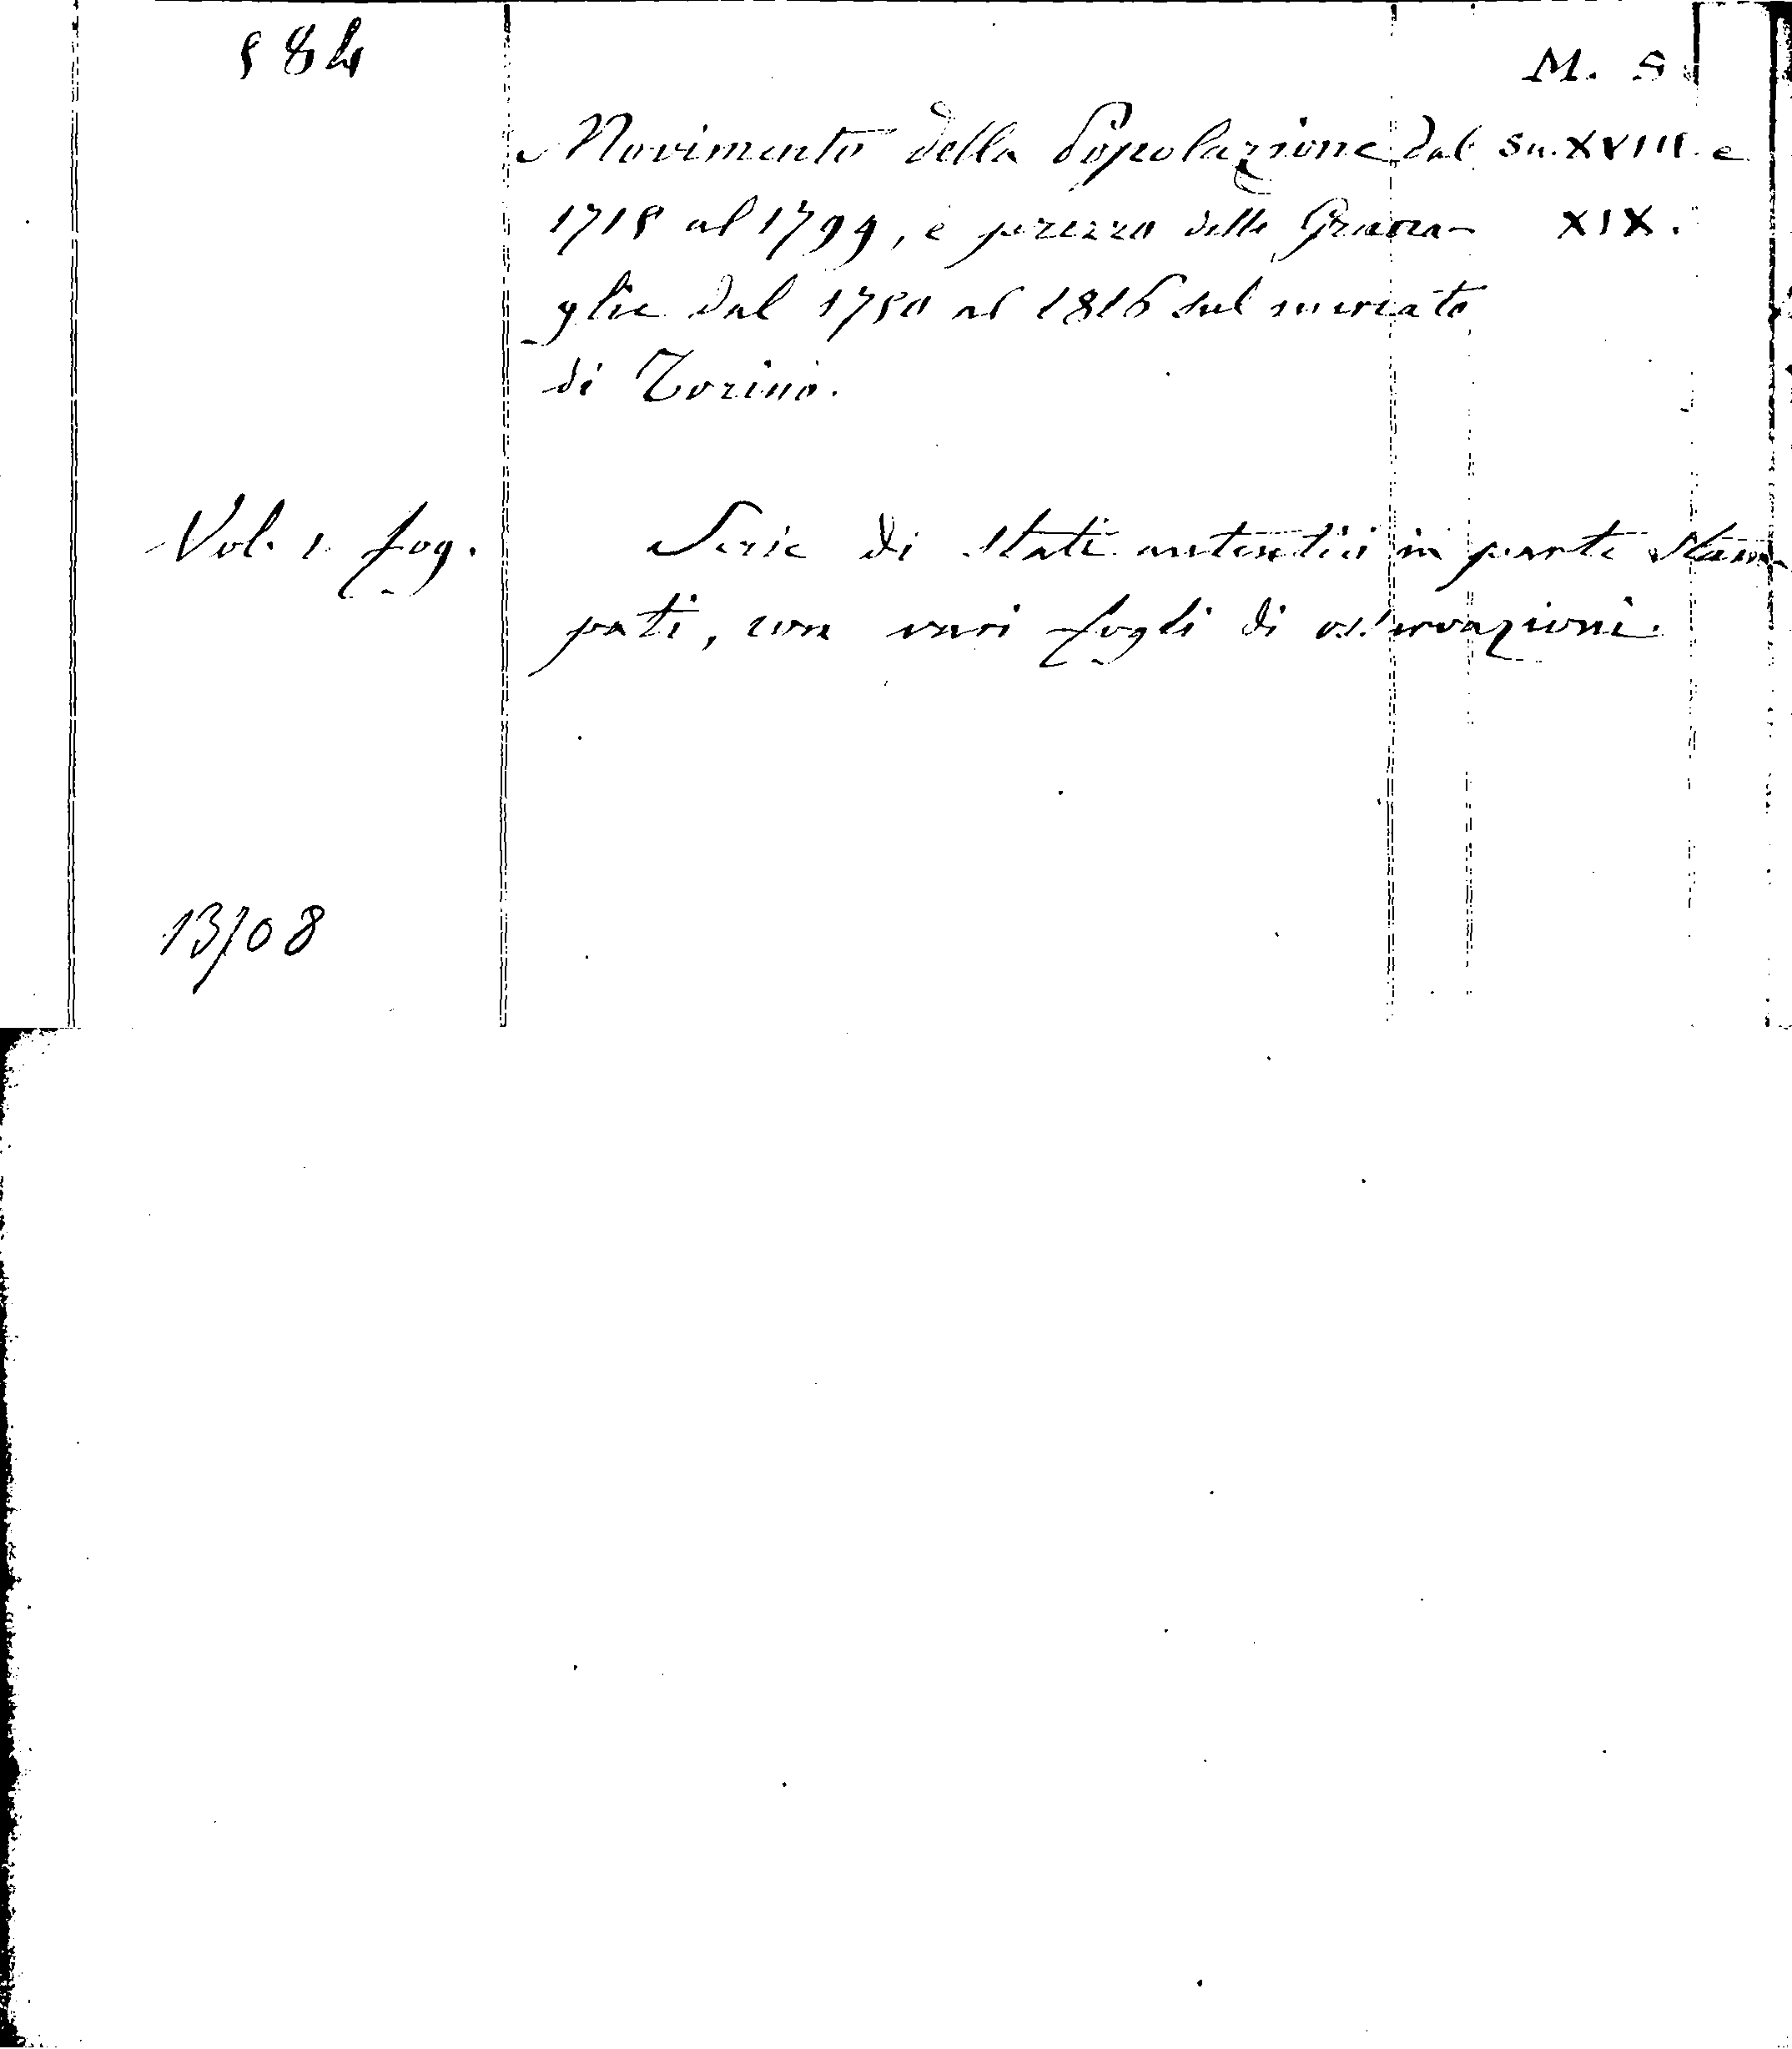 584
M. S.
Movimento della Popolazione dal Sec. XVIII. e
1715 al 1799, e prezzo delle Grana- XIX.
glie dal 1750 al 1816 sul mercato
di Torino.
Vol. 1. fog. Serie di stati autentici in parte stam-
pati, con vari fogli di osservazioni.
13708